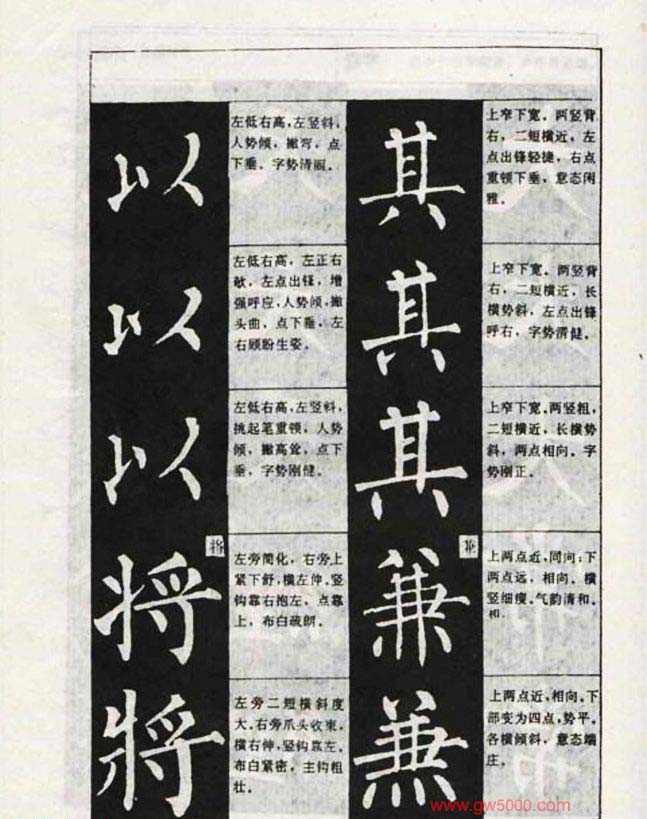 以
左低右高,左竖斜,
人势倾,撇弯,点
下垂。字势清丽。
以
左低右高,左正右
欹,左点出锋,增
强呼应,人势倾,撇
头曲,点下垂,左
右顾盼生姿。
以
左低右高,左竖斜,
挑起笔重顿,人势
倾,撇高耸,点下
垂,字势刚健。
将
将
左旁简化,右旁上
紧下舒,横左伸。竖
钩靠右抱左、点靠
上,布白疏朗。
將
左旁二短横斜度
大。右旁爪头收束,
横右伸,竖钩靠左。
布白紧密,主钩粗
壮。
其
上窄下宽。两竖背
右,二短横近,左
点出锋轻捷,右点
重顿下垂,意态闲
雅。
其
上窄下宽。两竖背
右,二短横近,长
横势斜,左点出锋
呼右,字势清健。
其
上窄下宽。两竖粗,
二短横近,长横势
斜,两点相向。字
势刚正。
兼
兼
上两点近,同向;下
两点远,相向。横
竖细瘦。气韵清和。
和.
兼
上两点近,相向。下
部变为四点,势平。
各横倾斜,意态端
庄。
www.gw5000.com